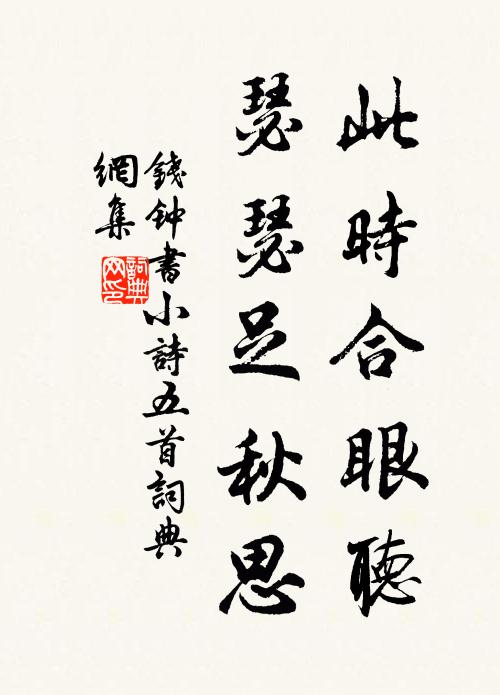 此時合眼聽
瑟瑟足秋思
錢钟書小詩五首詞典
網集
詞典網印